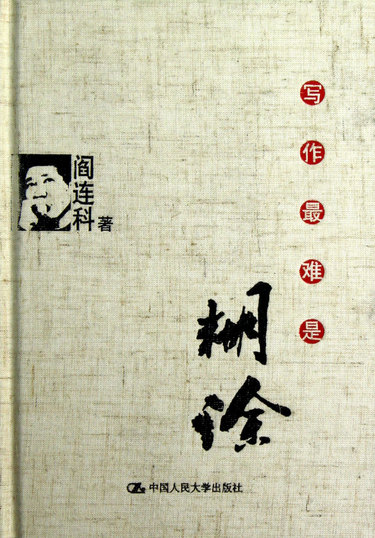 写作最难是
糊涂
阎连科
著
中国人民大学出版社